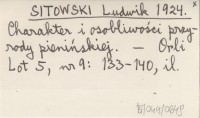 SITOWSKI Ludwik 1924.
Charakter i osobliwości przy-
rody pienińskiej. — Orli
Lot 5, nr 9: 133-140, il.